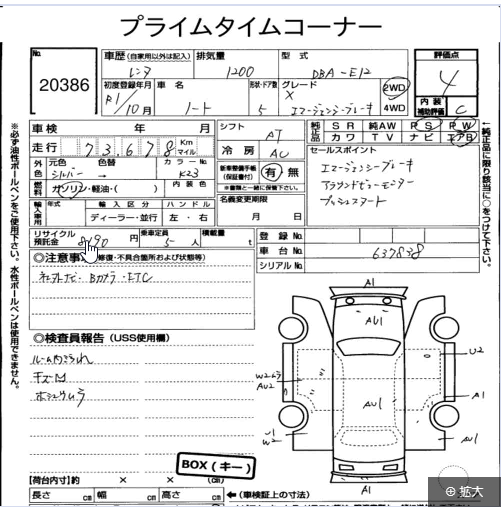 プライムタイムコーナー
No.
20386
車歴 (自家用以外は記入)
レンタ
排気量
1200
型式
DBA-E12
評価点
4
初度登録年月
R1/10月
車名
ノート
形状・ドア数
5
グレード
X
エマージェンシーブレーキ
2WD
4WD
内装
補助評価
C
車検 年 月
走行 73678 Km マイル
シフト
AT
冷房
AC
純正品 SR 純AW PS PW
カワ TV ナビ エアB
セールスポイント
エマージェンシーブレーキ
アラウンドビューモニター
プッシュスタート
外色 元色 色替 カラーNo.
シルバー → K23
燃料 ガソリン・軽油・( ) 内装色
新車整備手帳 (保証書付) 有 無
※書類と一緒に保管下さい。
輸入車用 年式 輸入区分 ハンドル
ディーラー・並行 左・右
名義変更期限
月 日
リサイクル預託金 円
乗車定員 5人
積載量 t
登録No.
車台No. 637838
シリアルNo.
◎注意事 修復・不具合箇所および状態等)
Bカメラ・ETC
◎検査員報告 (USS使用欄)
BOX (キー)
【荷台内寸】約 × × (cm)
長さ cm 幅 cm 高さ cm
←(車検証上の寸法)
※必ず油性ボールペンをご使用下さい。水性ボールペンは使用できません。
A1
AU1
U2
W2ムラ
AU2
A1
AU1
U1
W2
AU1
A1
拡大